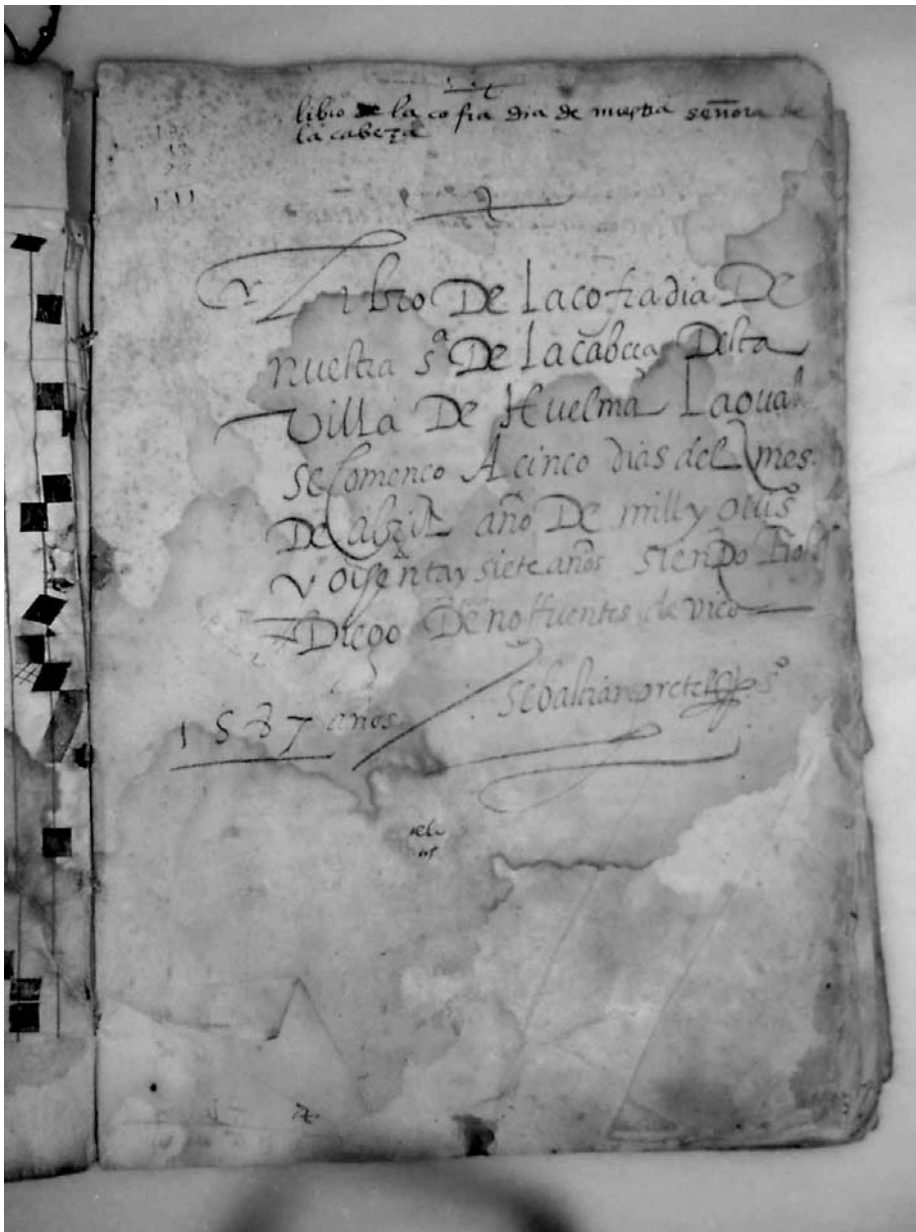 libro de la cofradia de nuestra señora de
la cabeza
Libro De la cofradia De
nuestra sª De la cabeça Desta
Villa De Huelma La qual
se Començo A cinco dias del mes
De Abril año De mill y
y ochenta y siete años siendo
Diego De noffuentes de vico
sebastian pretel
1587 años